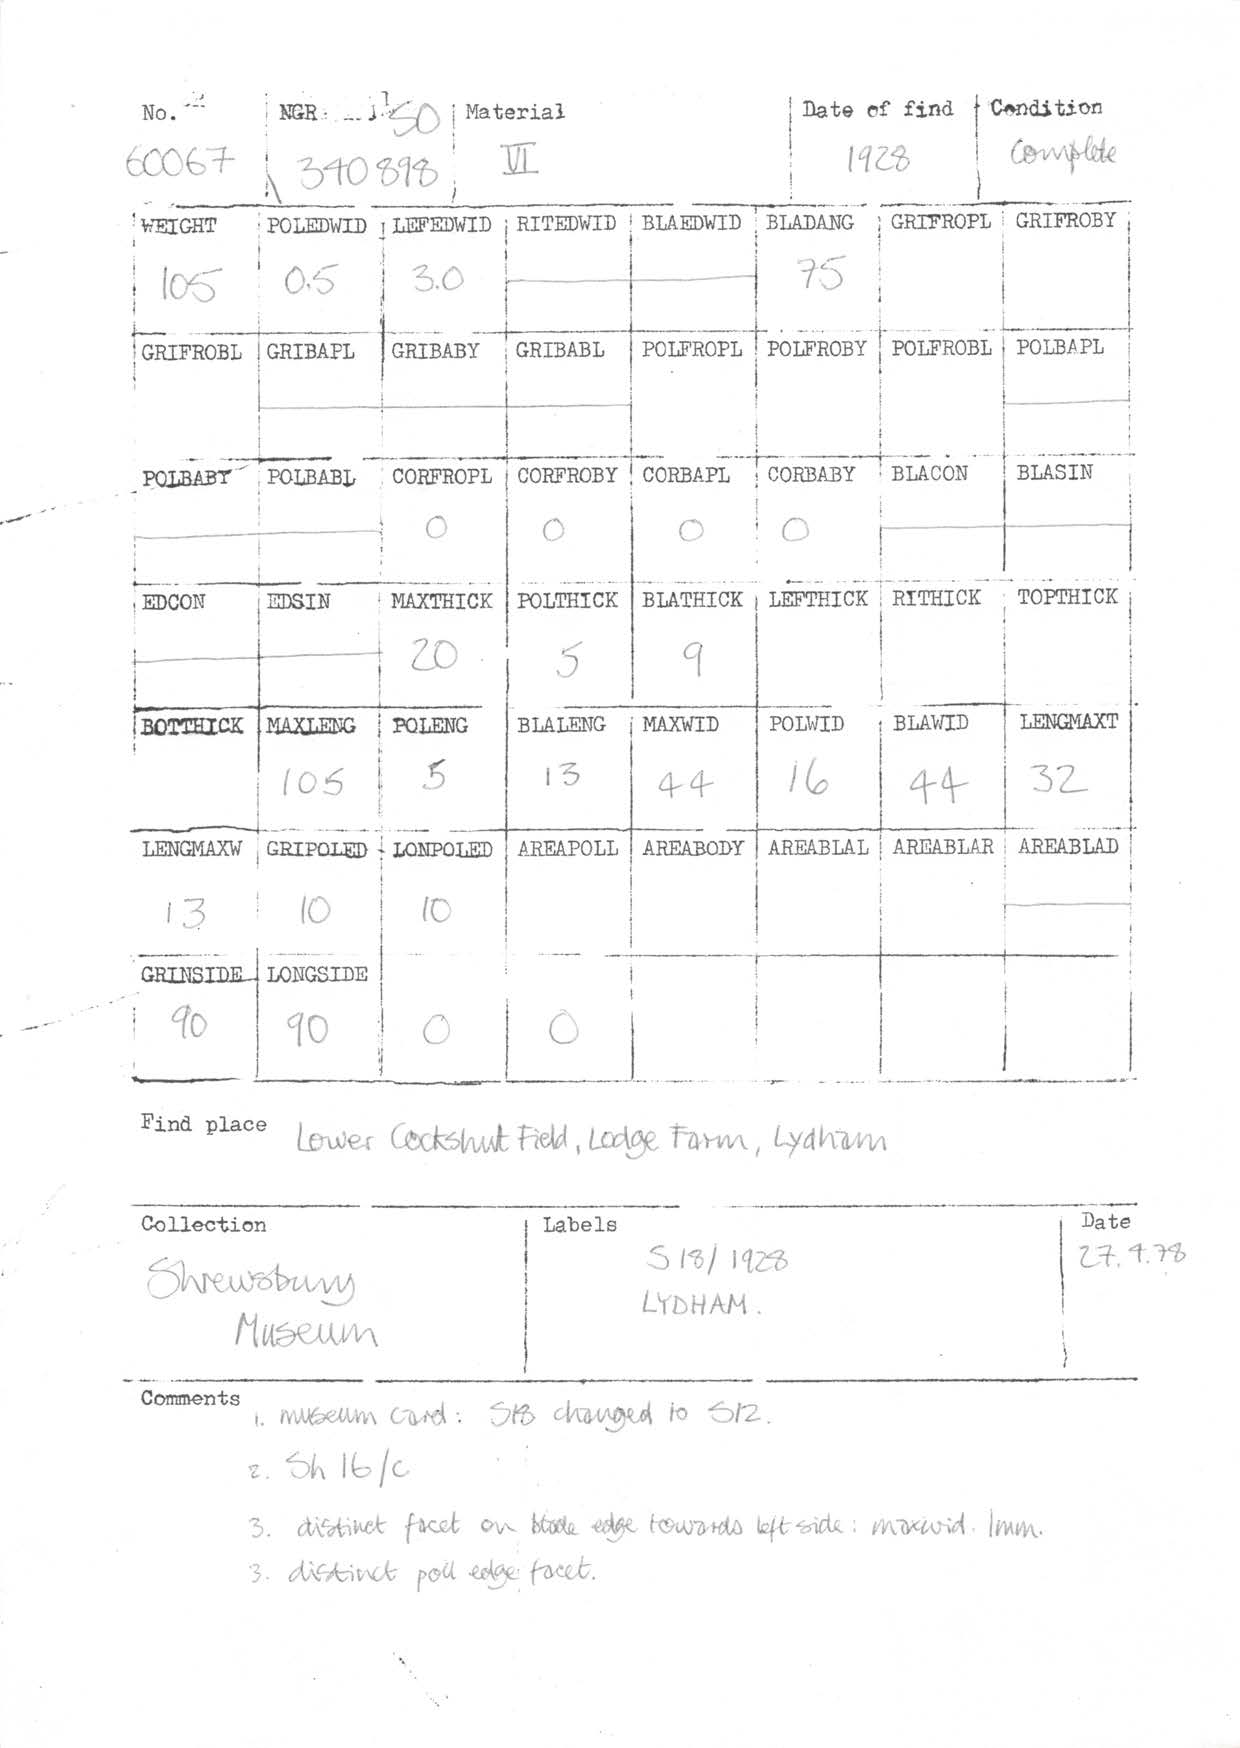 No. NGR SO Material Date of find Condition
60067 340898 VI 1928 Complete
WEIGHT POLEDWID LEFEDWID RITEDWID BLAEDWID BLADANG GRIFROPL GRIFROBY
105 0.5 3.0 75
GRIFROBL GRIBAPL GRIBABY GRIBABL POLFROPL POLFROBY POLFROBL POLBAPL
POLBABY POLBABL CORFROPL CORFROBY CORBAPL CORBABY BLACON BLASIN
0 0 0 0
EDCON EDSIN MAXTHICK POLTHICK BLATHICK LEFTHICK RITHICK TOPTHICK
20 5 9
BOTTHICK MAXLENG POLENG BLALENG MAXWID POLWID BLAWID LENGMAXT
105 5 13 44 16 44 32
LENGMAXW GRIPOLED LONPOLED AREAPOLL AREABODY AREABLAL AREABLAR AREABLAD
13 10 10
GRINSIDE LONGSIDE
90 90 0 0
Find place Lower Cockshut Field, Lodge Farm, Lydham
Collection Labels Date
Shrewsbury S 18/1928 27.4.78
Museum LYDHAM.
Comments
1. museum card: S18 changed to S12.
2. Sh 16/c
3. distinct facet on blade edge towards left side: maxwid. 1mm.
3. distinct poll edge facet.